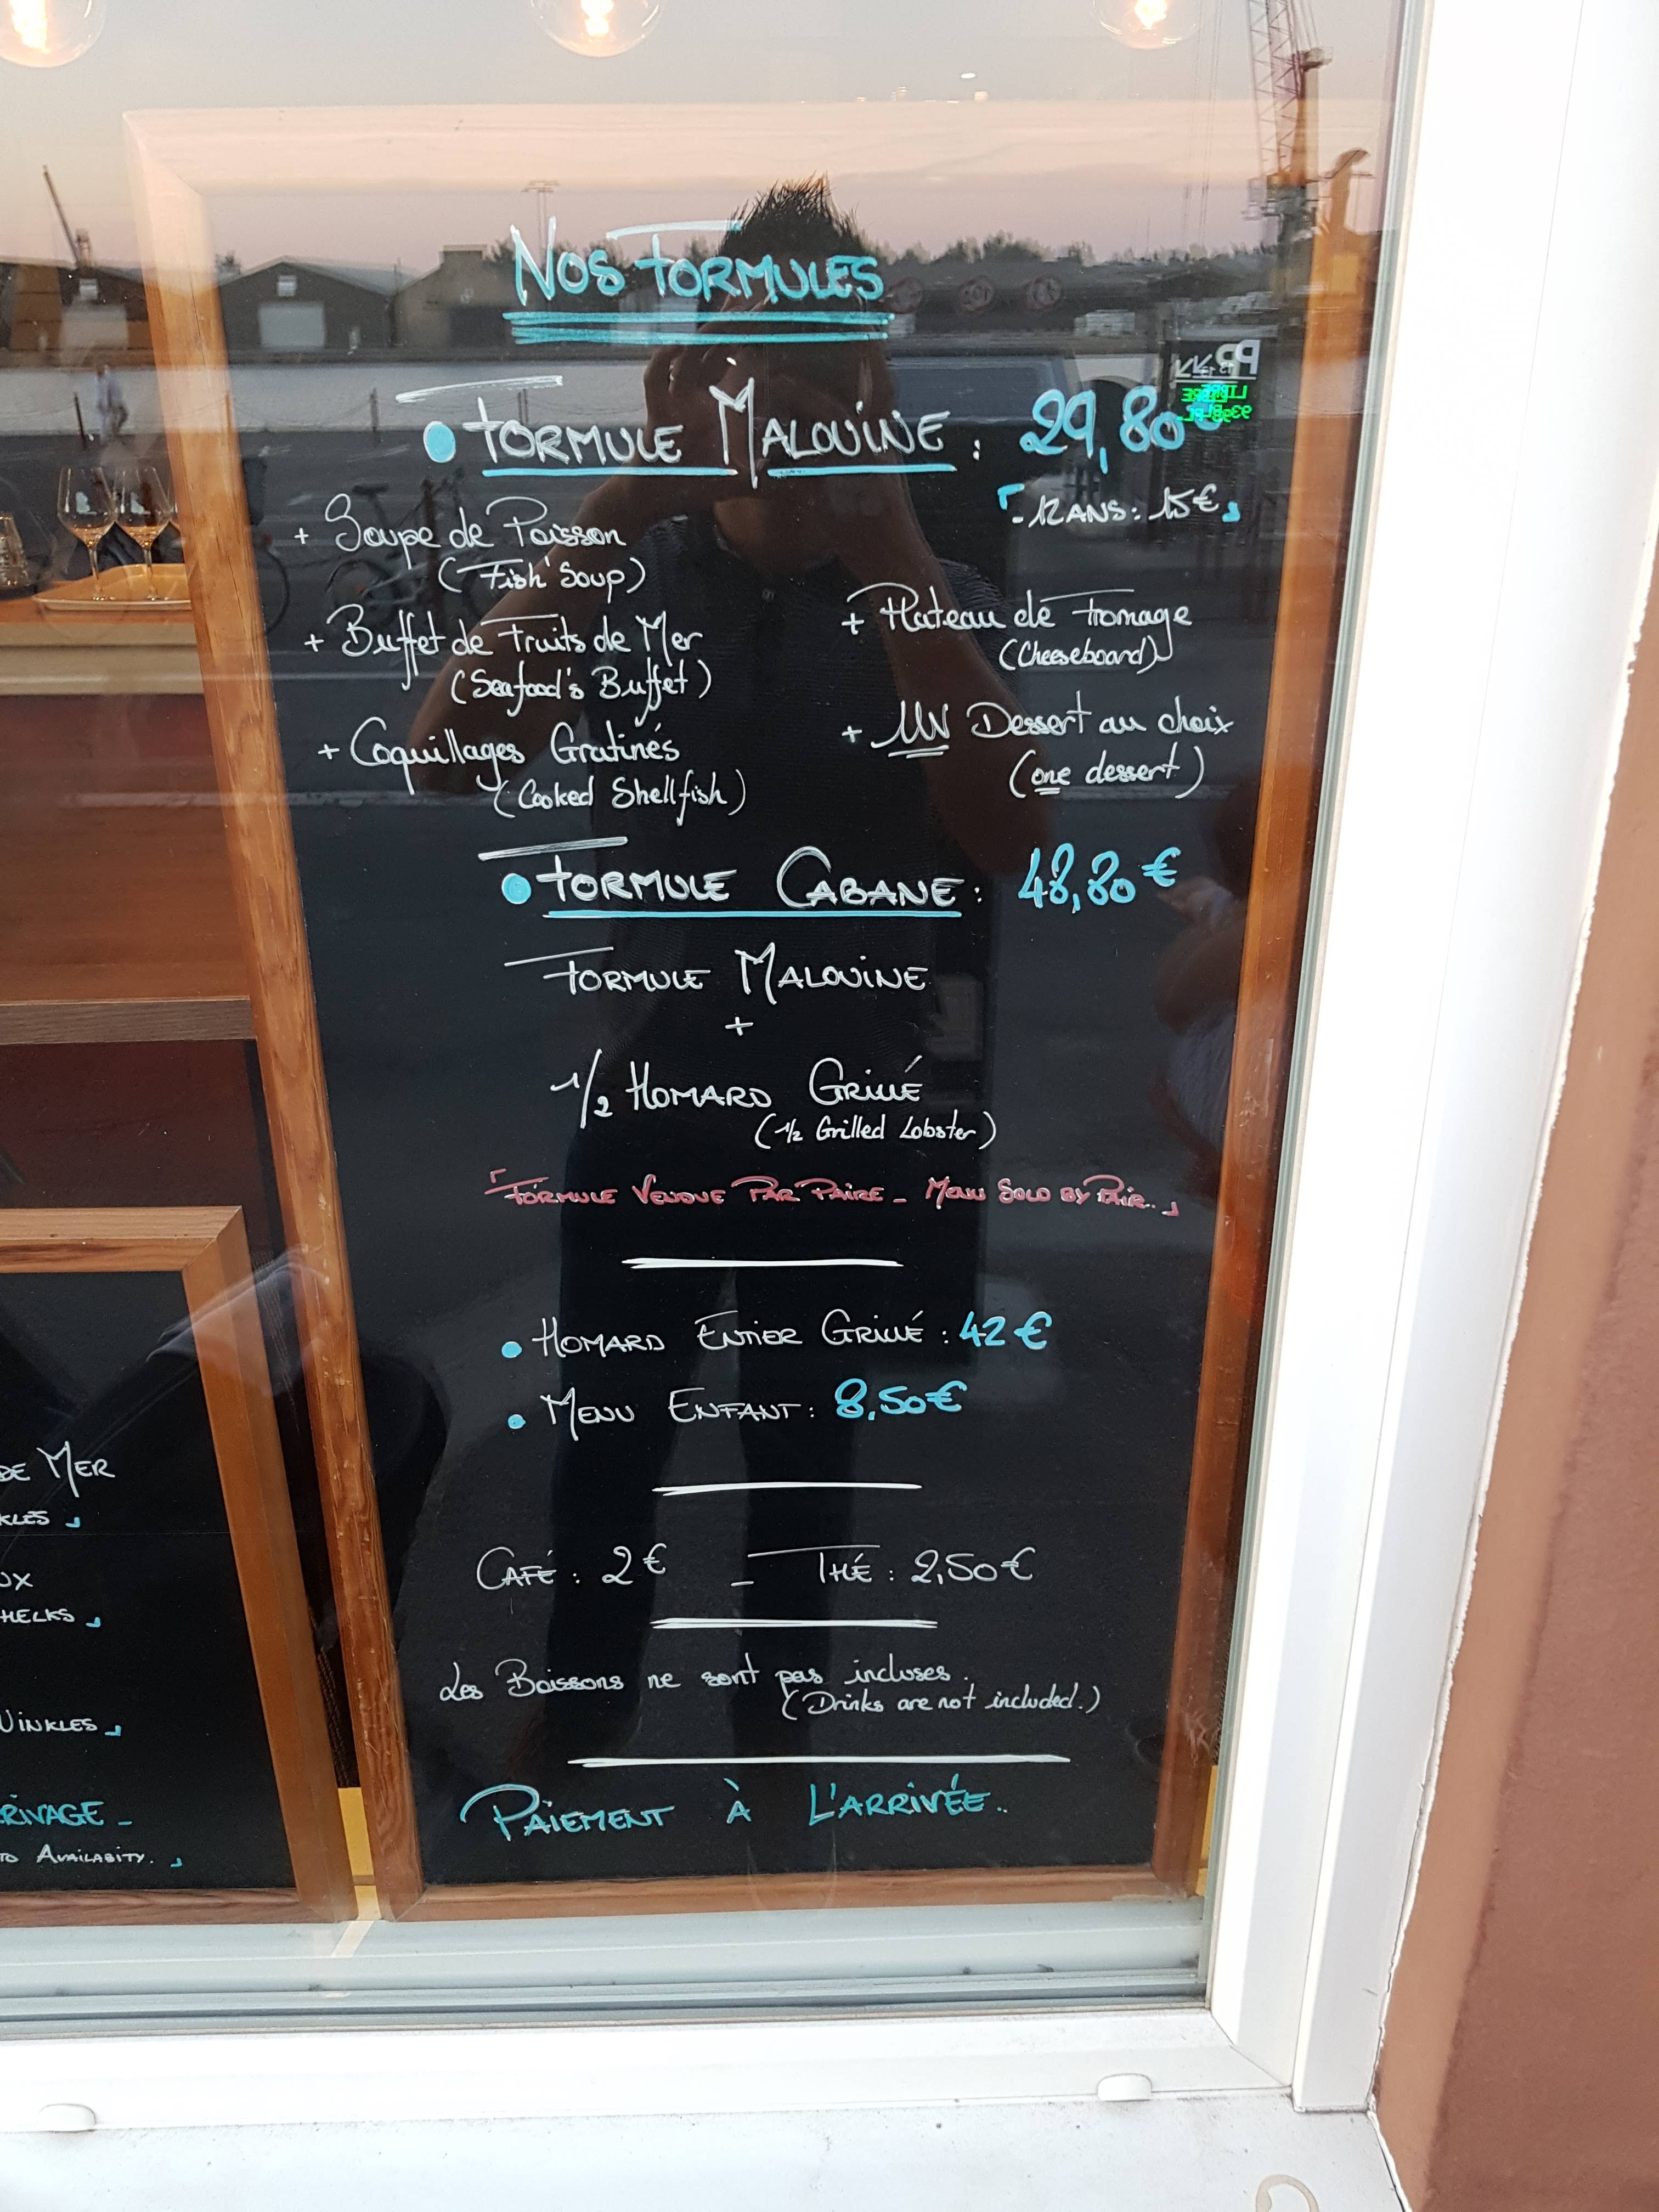 NOS FORMULES
• FORMULE MALOUINE : 29,80€
「-12 ANS : 15€」
+ Soupe de Poisson
(Fish' Soup)
+ Buffet de Fruits de Mer
(Seafood's Buffet)
+ Coquillages Gratinés
(Cooked Shellfish)
+ Plateau de Fromage
(Cheeseboard)
+ UN Dessert au choix
(one dessert)
• FORMULE CABANE : 48,80€
FORMULE MALOUINE
+
1/2 HOMARD GRILLÉ
(1/2 Grilled Lobster)
「FORMULE VENDUE PAR PAIRE - MENU SOLD BY PAIR..」
• HOMARD ENTIER GRILLÉ : 42€
• MENU ENFANT : 8,50€
CAFÉ : 2€ - THÉ : 2,50€
Les Boissons ne sont pas incluses.
(Drinks are not included.)
PAIEMENT À L'ARRIVÉE..
DE MER
KLES」
UX
HELKS」
WINKLES」
RIVAGE -
TO AVAILABITY.」